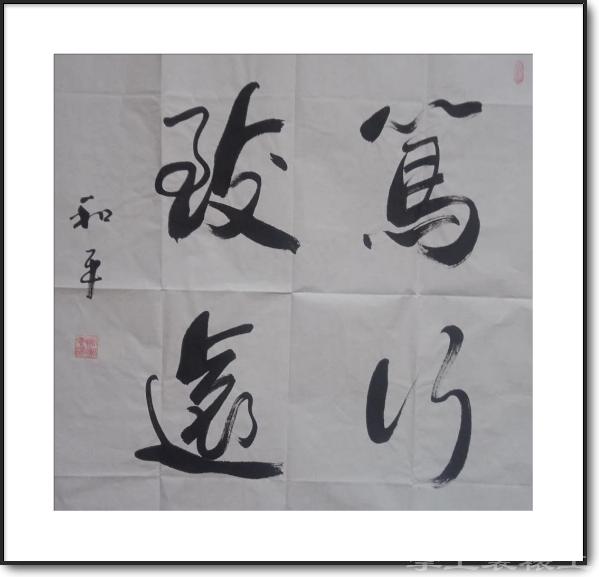 篤行
致遠
和平